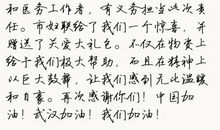 和医务工作者,有义务担当此次责
任。市妇联给了我们一个惊喜,并
赠送了关爱大礼包。不仅在物资上
给予我们极大帮助,而且在精神上
以巨大鼓舞,让我们感到无比温暖
和自豪。再次感谢你们!中国加
油!武汉加油!我们加油!